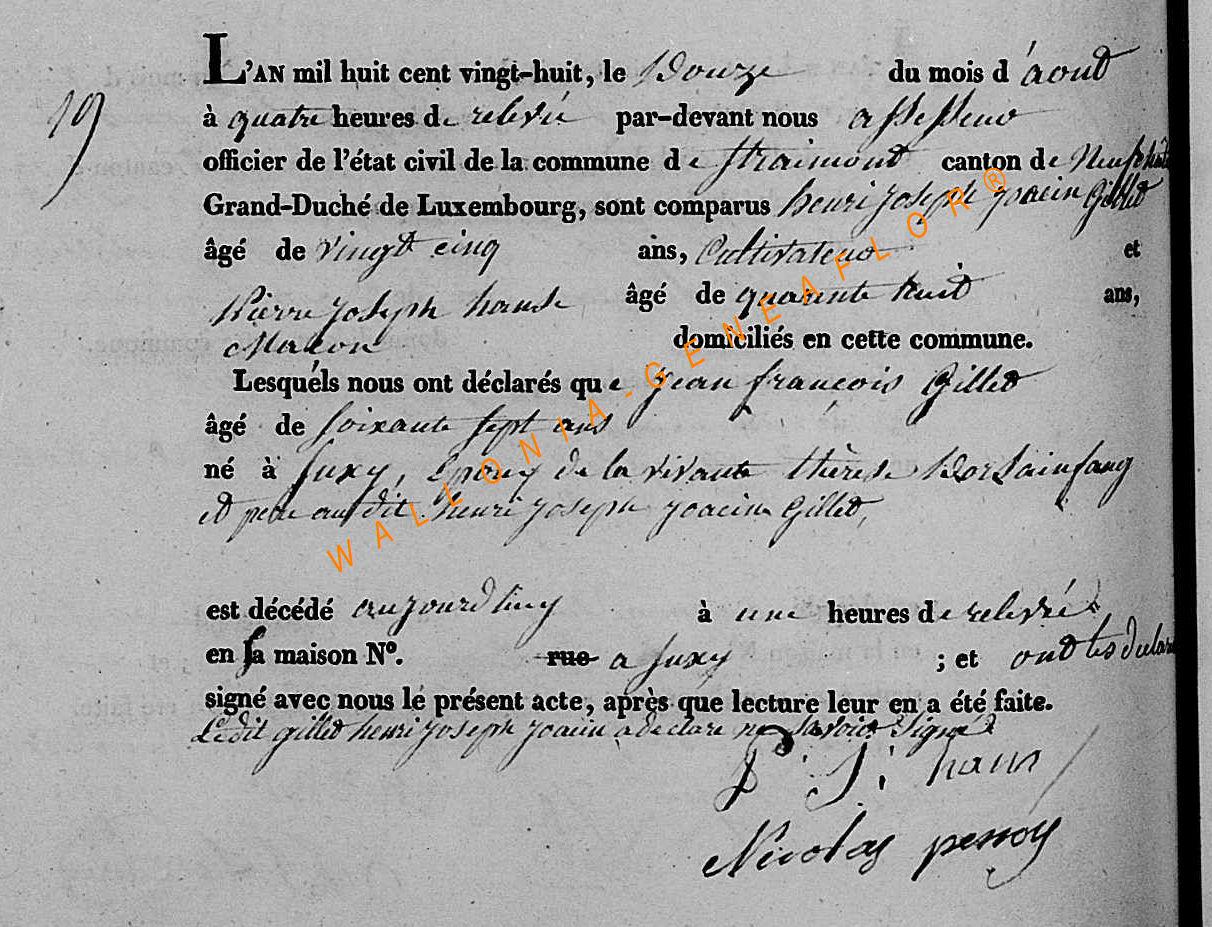 19
L'AN mil huit cent vingt-huit, le Douze du mois d'aout
à quatre heures de relevée par-devant nous assesseur
officier de l'état civil de la commune de Straimont canton de
Grand-Duché de Luxembourg, sont comparus henri joseph joacin Gillet
âgé de vingt cinq ans, Cultivateur et
Pierre joseph âgé de quarente huit ans,
Maçon domiciliés en cette commune.
Lesquels nous ont déclarés que jean françois Gillet
âgé de soixante sept ans
né à Suxy, Epoux de la vivante thérese
et pere audit henri joseph joacin Gillet,
est décédé aujourdhuy à une heures de relevée
en sa maison N°. rue a Suxy ; et ont
signé avec nous le présent acte, après que lecture leur en a été faite.
Ledit gillet henri joseph joacin a declare ne savoir signé
P. J. haus
Nicolas
WALLONIA-GENEAFLOR®